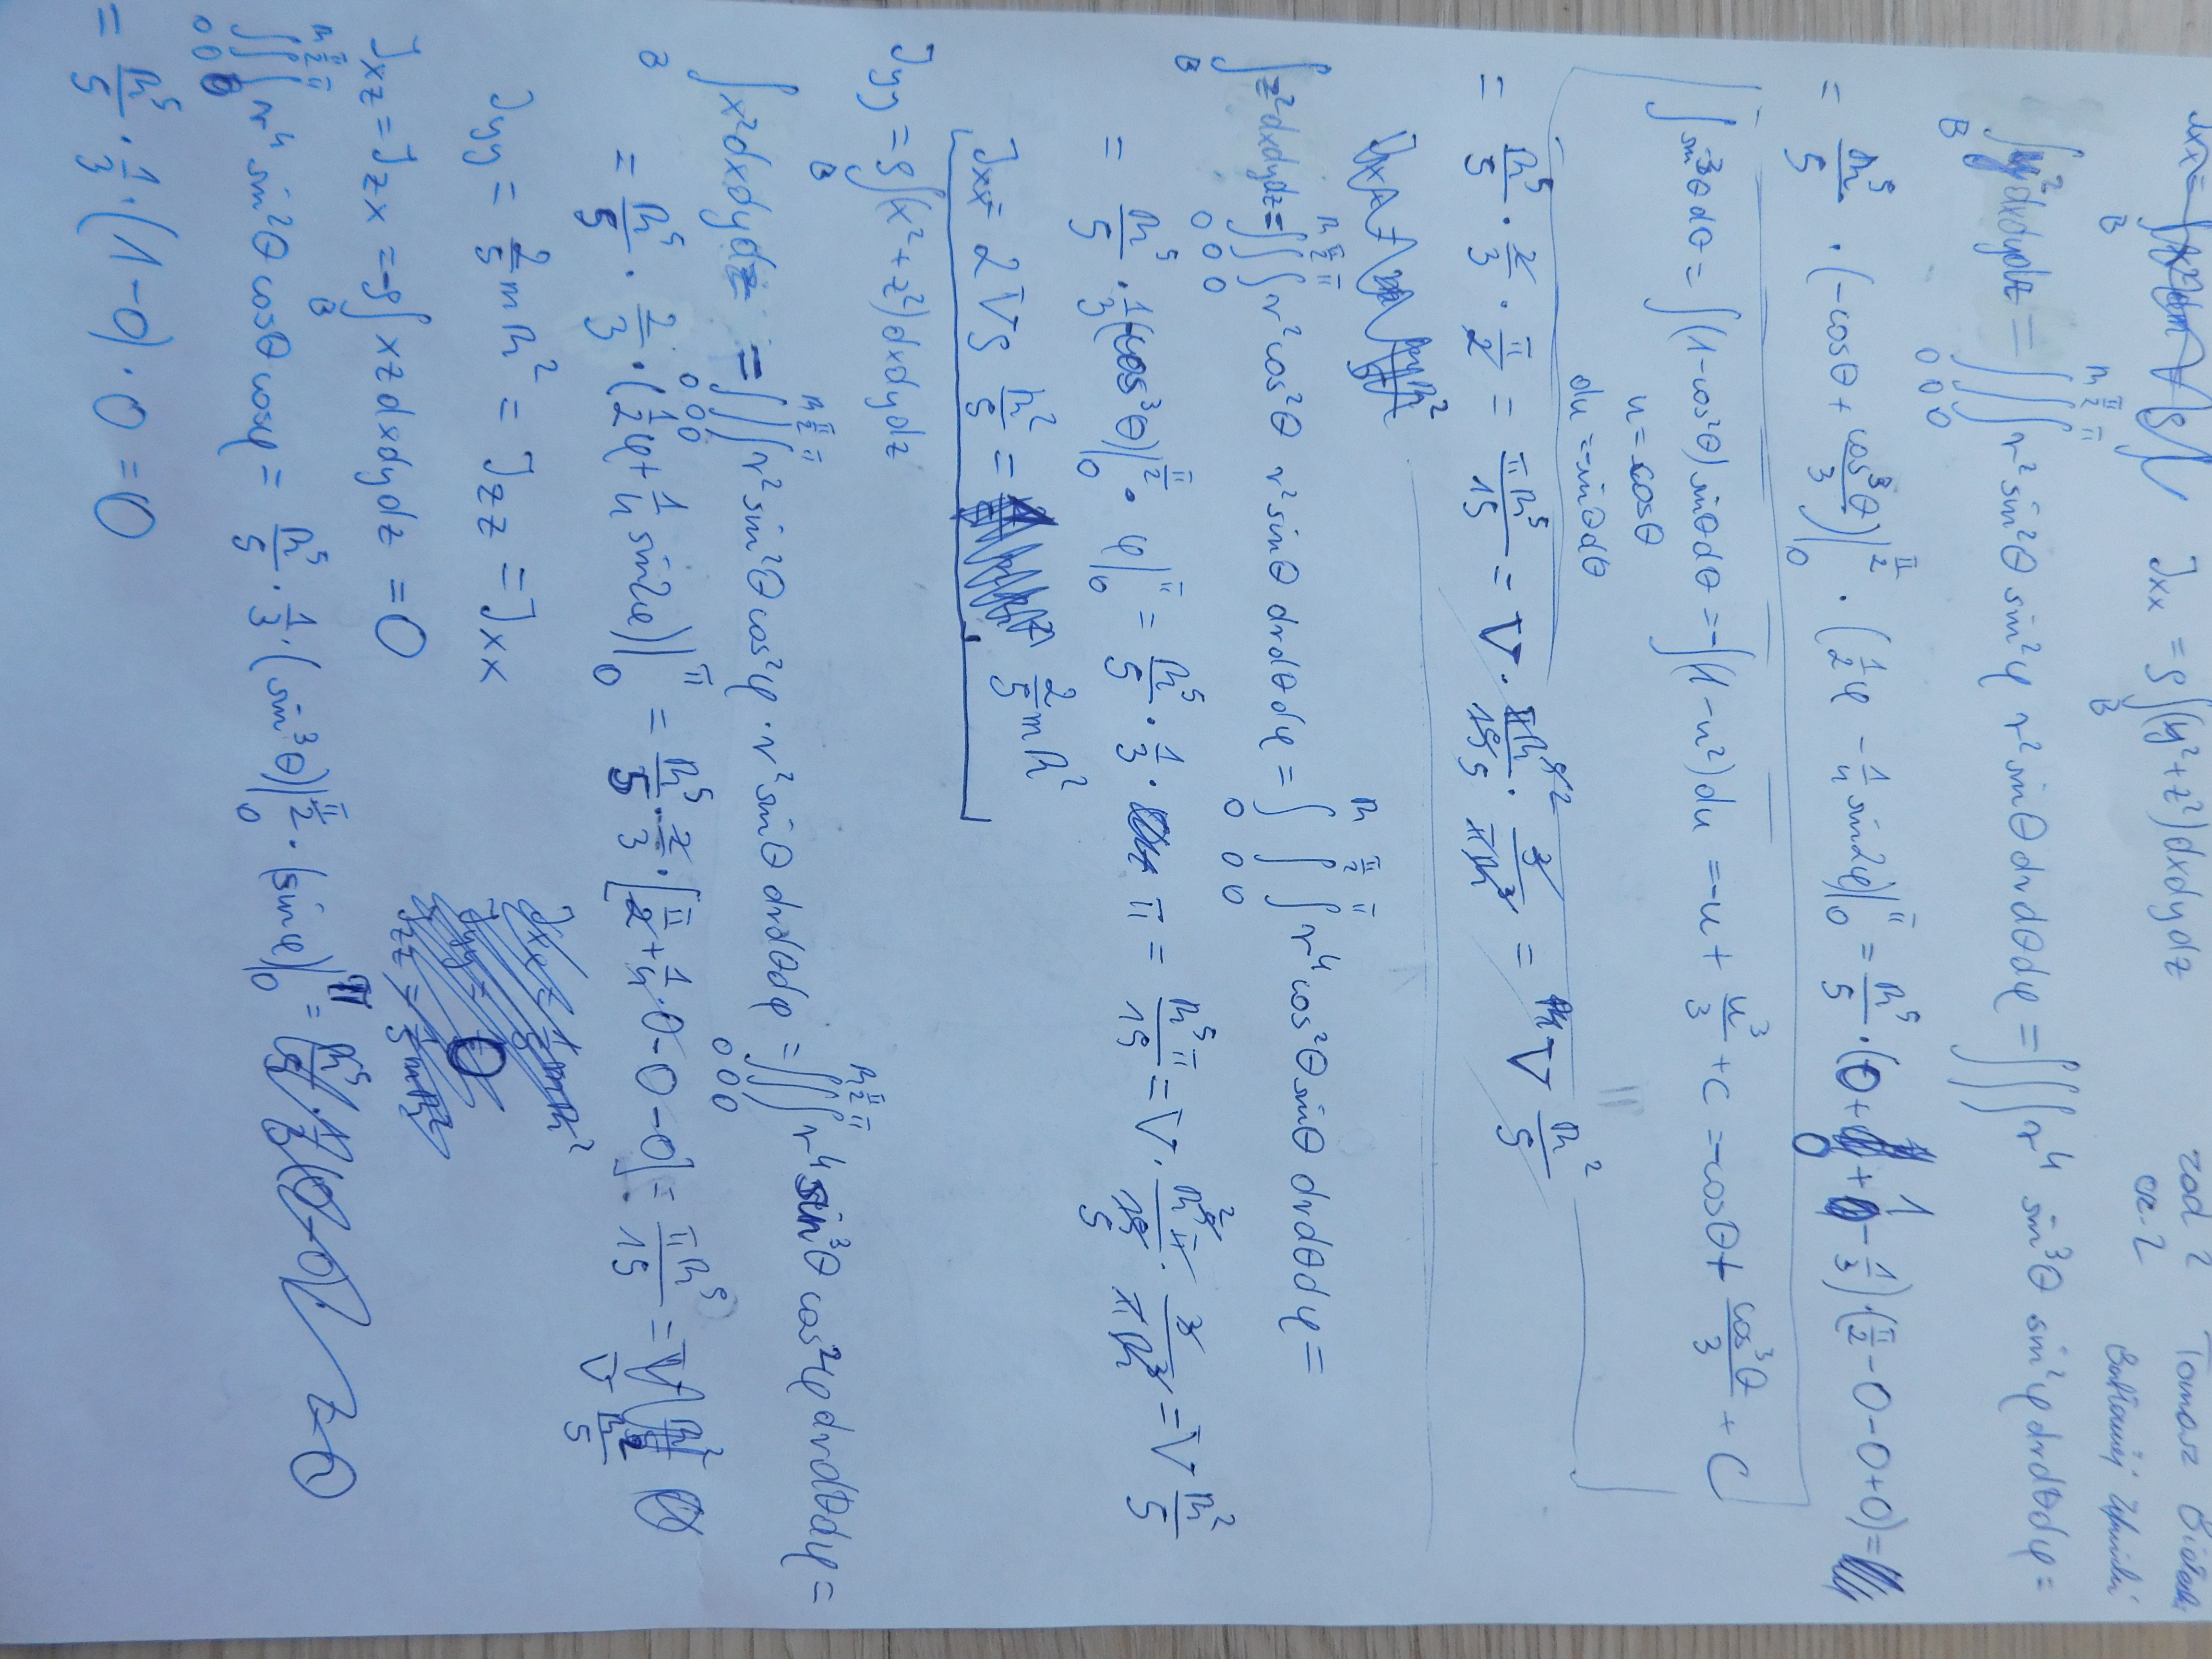 zad 2 Tomasz
cz. 2
Jxx = ρ∫_B (y²+z²)dxdydz
∫_B y²dxdydz = ∫_0^R ∫_0^{π/2} ∫_0^π r² sin²θ sin²φ r² sinθ drdθdφ = ∫∫∫ r⁴ sin³θ sin²φ drdθdφ =
= R⁵/5 · (-cosθ + cos³θ/3)|_0^{π/2} · (1/2 φ - 1/4 sin2φ)|_0^π = R⁵/5 · (0+0+1-1/3)·(π/2-0-0+0)=
∫sin³θdθ = ∫(1-cos²θ)sinθdθ = -∫(1-u²)du = -u + u³/3 + C = -cosθ + cos³θ/3 + C
u = cosθ
du = -sinθdθ
= R⁵/5 · 2/3 · π/2 = πR⁵/15 = V · πR⁵/15 · 3/πR³ = V R²/5
∫_B z²dxdydz = ∫_0^R ∫_0^{π/2} ∫_0^π r² cos²θ r² sinθ drdθdφ = ∫_0^R ∫_0^{π/2} ∫_0^π r⁴ cos²θ sinθ drdθdφ =
= R⁵/5 · 1/3 (cos³θ)|_0^{π/2} · φ|_0^π = R⁵/5 · 1/3 · π = R⁵π/15 = V · R⁵π/15 · 3/πR³ = V R²/5
Jxx = 2Vρ R²/5 = 2/5 mR²
Jyy = ρ∫_B (x²+z²)dxdydz
∫_B x²dxdydz = ∫_0^R ∫_0^{π/2} ∫_0^π r² sin²θ cos²φ · r² sinθ drdθdφ = ∫_0^R ∫_0^{π/2} ∫_0^π r⁴ sin³θ cos²φ drdθdφ =
= R⁵/5 · 2/3 · (1/2 φ + 1/4 sin2φ)|_0^π = R⁵/5 · 2/3 · [π/2 + 1/4 · 0 - 0 - 0] = πR⁵/15 = V R²/5
Jyy = 2/5 mR² = Jzz = Jxx
Jxz = Jzx = -ρ∫_B xzdxdydz = 0
∫_0^R ∫_0^{π/2} ∫_0^π r⁴ sin²θ cosθ cosφ = R⁵/5 · 1/3 · (sin³θ)|_0^{π/2} · (sinφ)|_0^π =
= R⁵/5 · 1/3 · (1-0) · 0 = 0